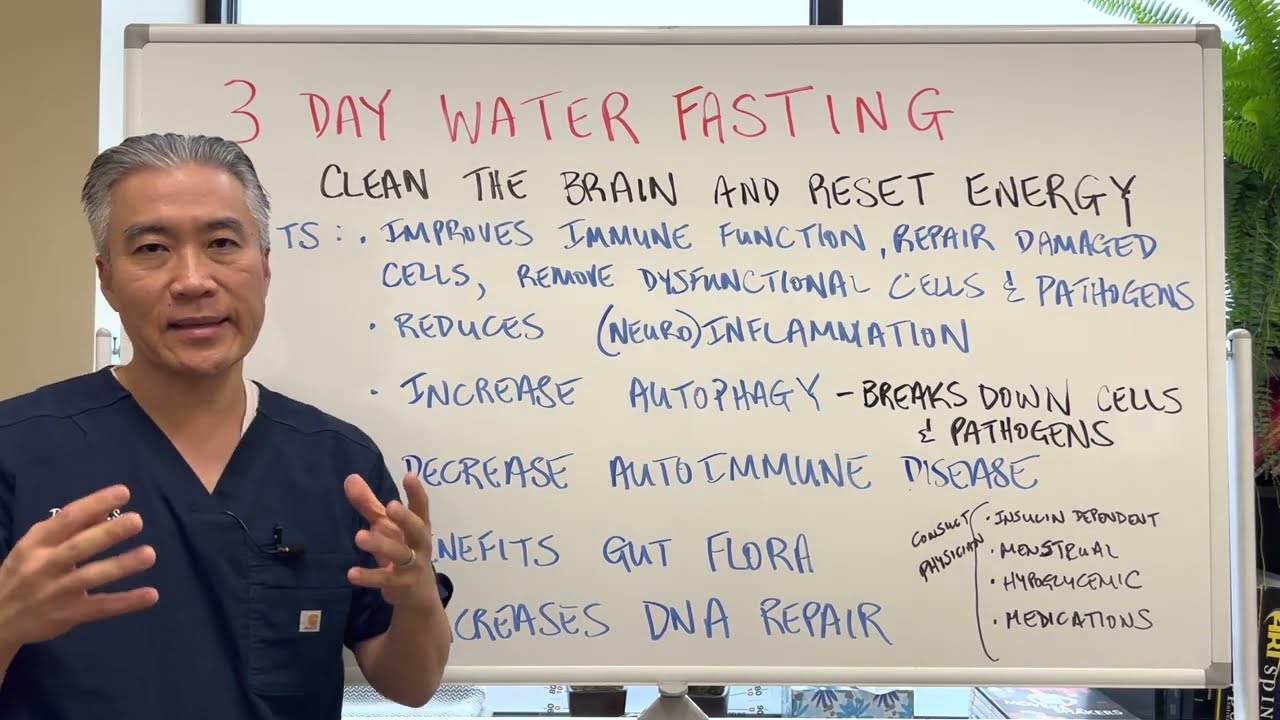 3 DAY WATER FASTING
CLEAN THE BRAIN AND RESET ENERGY
TS: • IMPROVES IMMUNE FUNCTION, REPAIR DAMAGED
CELLS, REMOVE DYSFUNCTIONAL CELLS & PATHOGENS
• REDUCES (NEURO)INFLAMMATION
• INCREASE AUTOPHAGY - BREAKS DOWN CELLS
& PATHOGENS
DECREASE AUTOIMMUNE DISEASE
ENEFITS GUT FLORA
CREASES DNA REPAIR
CONSULT
PHYSICIAN
• INSULIN DEPENDENT
• MENSTRUAL
• HYPOGLYCEMIC
• MEDICATIONS
SPIN